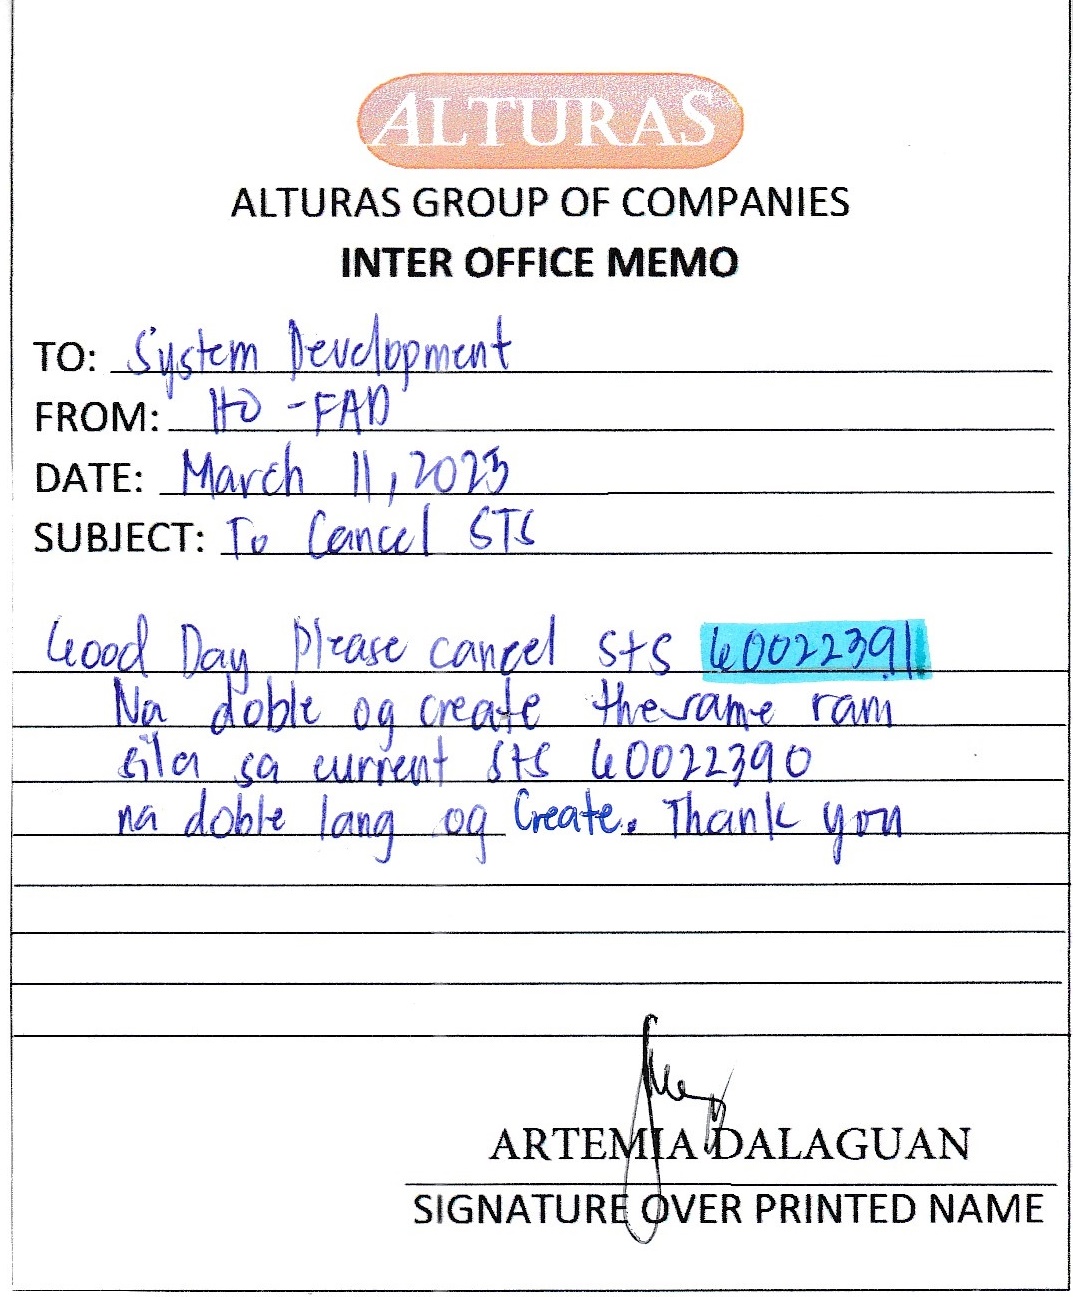 ALTURAS
ALTURAS GROUP OF COMPANIES
INTER OFFICE MEMO
TO: System Development
FROM: HO - FAD
DATE: March 11, 2023
SUBJECT: To Cancel STS
Good Day Please cancel STS 60022391
Na doble og create the same rani
sila sa current STS 60022390
na doble lang og Create. Thank you
ARTEMIA DALAGUAN
SIGNATURE OVER PRINTED NAME